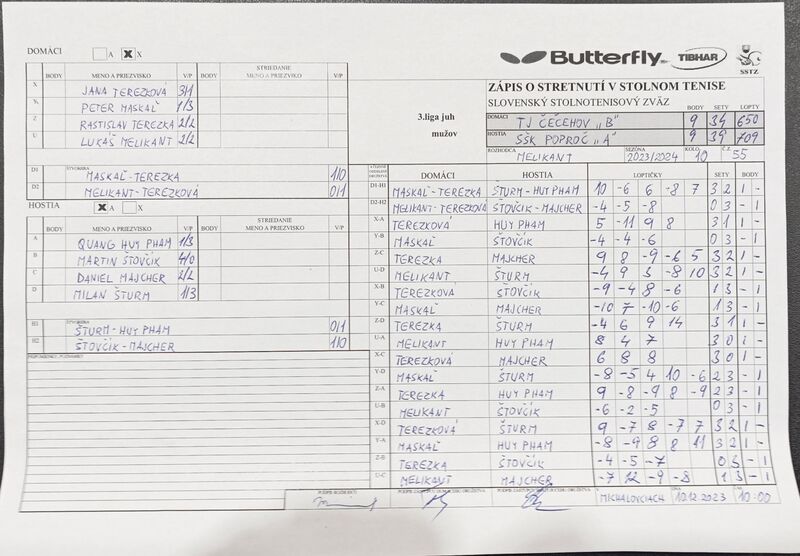 DOMÁCI A X X
Butterfly TIBHAR SSTZ
BODY MENO A PRIEZVISKO V/P BODY STRIEDANIE MENO A PRIEZVISKO V/P
X JANA TEREZKOVÁ 3/1
Y PETER MASKAĽ 1/3
Z RASTISLAV TEREZKA 2/2
U LUKÁŠ MELIKANT 2/2
3.liga juh
mužov
ZÁPIS O STRETNUTÍ V STOLNOM TENISE
SLOVENSKÝ STOLNOTENISOVÝ ZVÄZ BODY SETY LOPTY
DOMÁCI TJ ČEČEHOV "B" 9 34 650
HOSTIA ŠŠK POPROČ "A" 9 39 709
ROZHODCA MELIKANT SEZÓNA 2023/2024 KOLO 10 Č.Z. 55
D1 ŠTVORHRA MASKAĽ-TEREZKA 1/0
D2 MELIKANT-TEREZKOVÁ 0/1
HOSTIA X A
STRIEDANIE
BODY MENO A PRIEZVISKO V/P BODY MENO A PRIEZVISKO V/P
A QUANG HUY PHAM 1/3
B MARTIN ŠTOVČÍK 4/0
C DANIEL MAJCHER 2/2
D MILAN ŠTURM 1/3
H1 ŠTVORHRA ŠTURM-HUY PHAM 0/1
H2 ŠTOVČÍK-MAJCHER 1/0
DOMÁCI HOSTIA LOPTIČKY SETY BODY
D1-H1 MASKAĽ-TEREZKA ŠTURM-HUY PHAM 10 -6 6 -8 7 3 2 1 -
D2-H2 MELIKANT-TEREZKOVÁ ŠTOVČÍK-MAJCHER -4 -5 -8 0 3 - 1
X-A TEREZKOVÁ HUY PHAM 5 -11 9 8 3 1 1 -
Y-B MASKAĽ ŠTOVČÍK -4 -4 -6 0 3 - 1
Z-C TEREZKA MAJCHER 9 8 -9 -6 5 3 2 1 -
U-D MELIKANT ŠTURM -4 9 3 -8 10 3 2 1 -
X-B TEREZKOVÁ ŠTOVČÍK -9 -4 8 -6 1 3 - 1
Y-C MASKAĽ MAJCHER -10 7 -10 -6 1 3 - 1
Z-D TEREZKA ŠTURM -4 6 9 14 3 1 1 -
U-A MELIKANT HUY PHAM 8 4 7 3 0 1 -
X-C TEREZKOVÁ MAJCHER 6 8 8 3 0 1 -
Y-D MASKAĽ ŠTURM -8 -5 4 10 -6 2 3 - 1
Z-A TEREZKA HUY PHAM 9 -8 -9 8 -9 2 3 - 1
U-B MELIKANT ŠTOVČÍK -6 -2 -5 0 3 - 1
X-D TEREZKOVÁ ŠTURM 9 -7 8 -7 7 3 2 1 -
Y-A MASKAĽ HUY PHAM -8 -9 8 8 11 3 2 1 -
Z-B TEREZKA ŠTOVČÍK -4 -5 -7 0 3 - 1
U-C MELIKANT MAJCHER -7 12 -9 -8 1 3 - 1
MICHALOVCIACH 10.12.2023 10:00